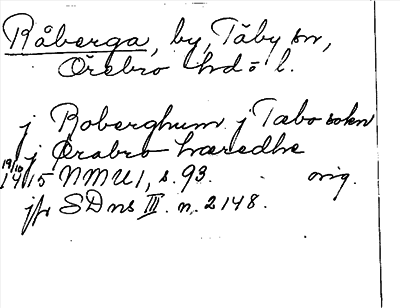 Råberga, by, Täby sn,
Örebro hd o l.
j Roberghum j Tæbo sokn
j Ørabro hæredhe
19/10 1415 NMU 1, s. 93. orig.
jfr SDns III. n. 2148.